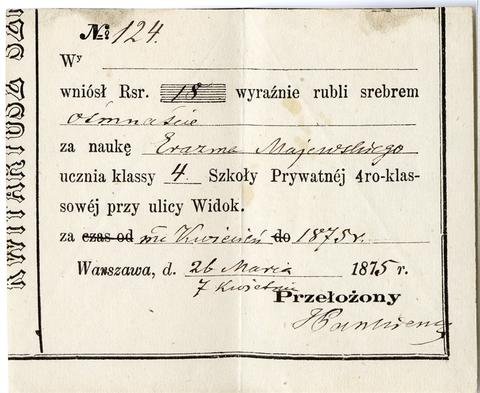 № 124.
Wy
wniósł Rsr. 18 wyraźnie rubli srebrem
ośmnaście
za naukę Erazma Majewskiego
ucznia klassy 4 Szkoły Prywatnéj 4ro-klas-
sowéj przy ulicy Widok.
za czas od mc Kwiecień do 1875 r.
Warszawa, d. 26 Marca 1875 r.
7 Kwietnia
Przełożony